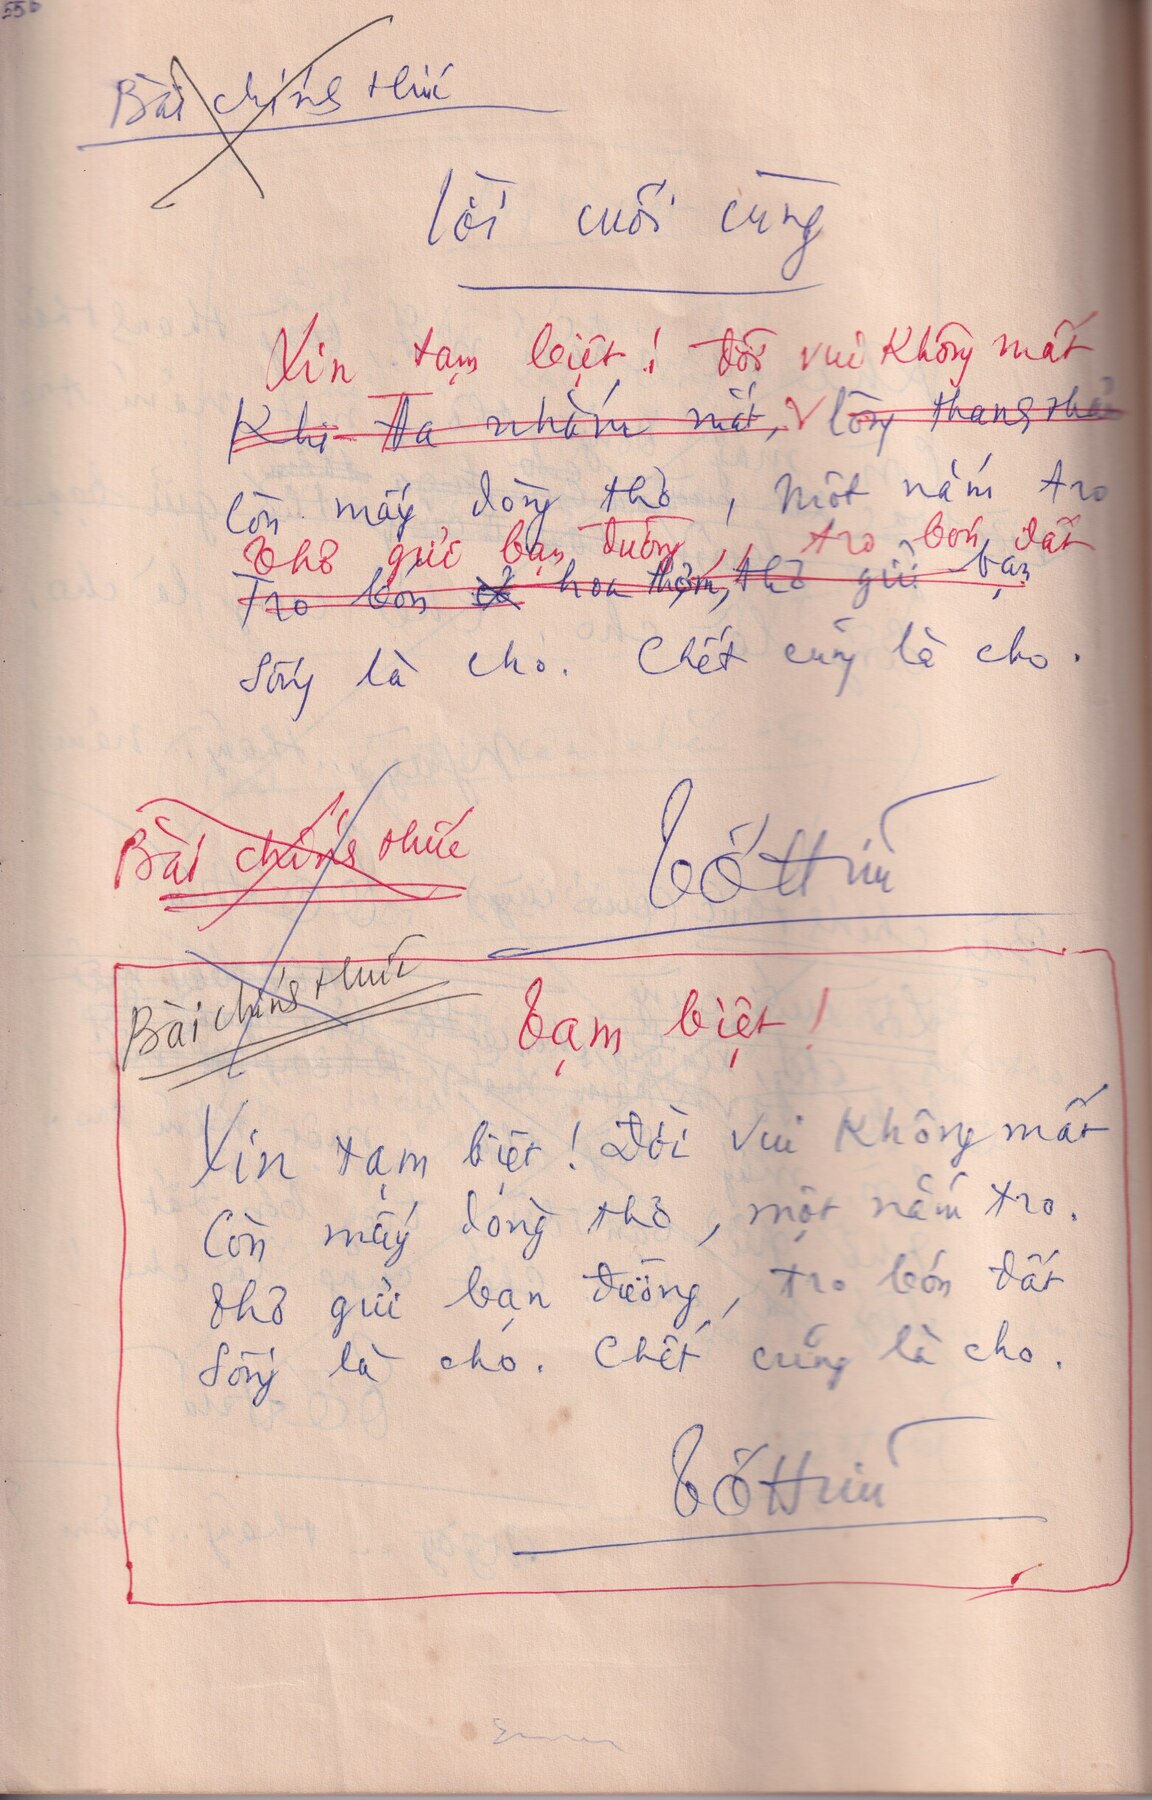 55b
Bài chính thức
Lời cuối cùng
Xin tạm biệt! Đời vui không mất
Khi Ta nhắm mắt, lòng thang thản
Còn mấy dòng thơ, một nắm tro
Thơ gửi bạn đường, tro bón đất
Tro bón hoa thơm, thơ gửi bạn
Sống là cho. Chết cũng là cho.
Tố Hữu
Bài chính thức
Bài chính thức
Tạm biệt!
Xin tạm biệt! Đời vui không mất
Còn mấy dòng thơ, một nắm tro.
Thơ gửi bạn đường, tro bón đất
Sống là cho. Chết cũng là cho.
Tố Hữu